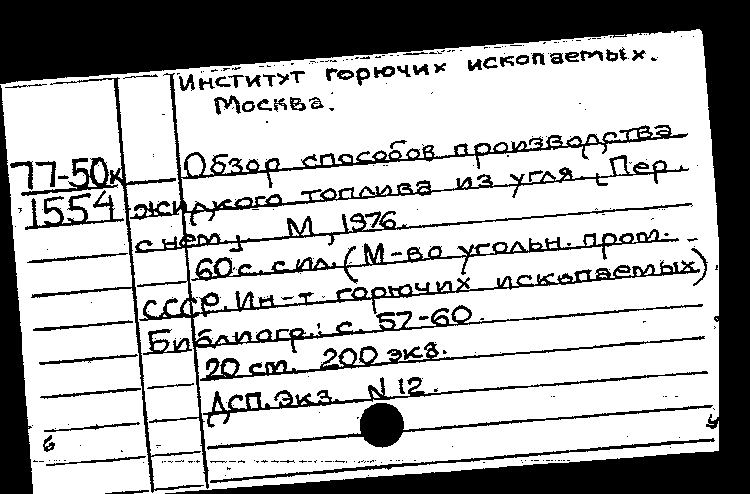 Институт горючих ископаемых.
Москва.
77-50к
1554
Обзор способов производства
жидкого топлива из угля. [Пер.
с нем.] М, 1976.
60 с. с ил. (М-во угольн. пром.
СССР. Ин-т. горючих ископаемых)
Библиогр.: с. 57-60.
20 см. 200 экз.
ДСП. Экз. N 12.
б
у